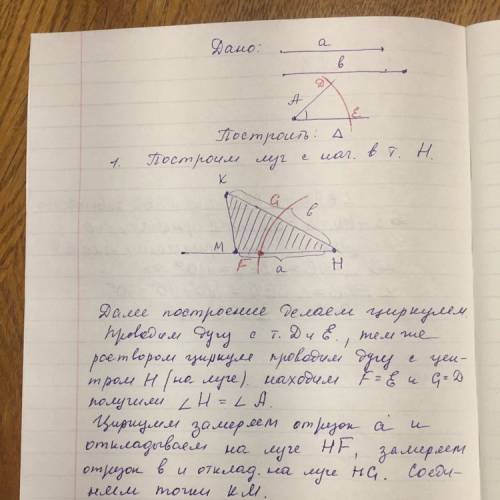 Дано: a
в
D
A
E
Построить: Δ
1. Построим луч с нач. в т. H.
K
G
в
M
F
a
H
Далее построение делаем циркулем
Проводим дугу с т. D и E, тем же
раствором циркуля проводим дугу с цен-
тром H (на луче). находим F = E и G = D
получили ∠H = ∠A.
Циркулем замеряем отрезок a и
откладываем на луче HF, замеряем
отрезок в и отклад. на луче HG. Соеди-
няем точки KM.